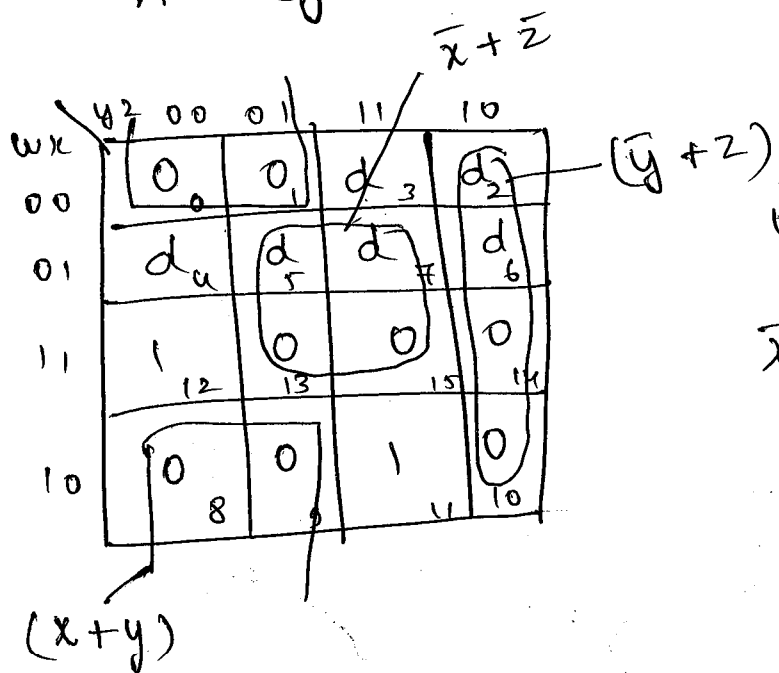 x̄ + z̄
yz 00 01 11 10
wx
(ȳ + z)
00 0 0 0 1 d 3 d 2
01 d 4 d 5 d 7 d 6
11 1 12 0 13 0 15 0 14
x̄
10 0 8 0 9 1 11 0 10
(x + y)